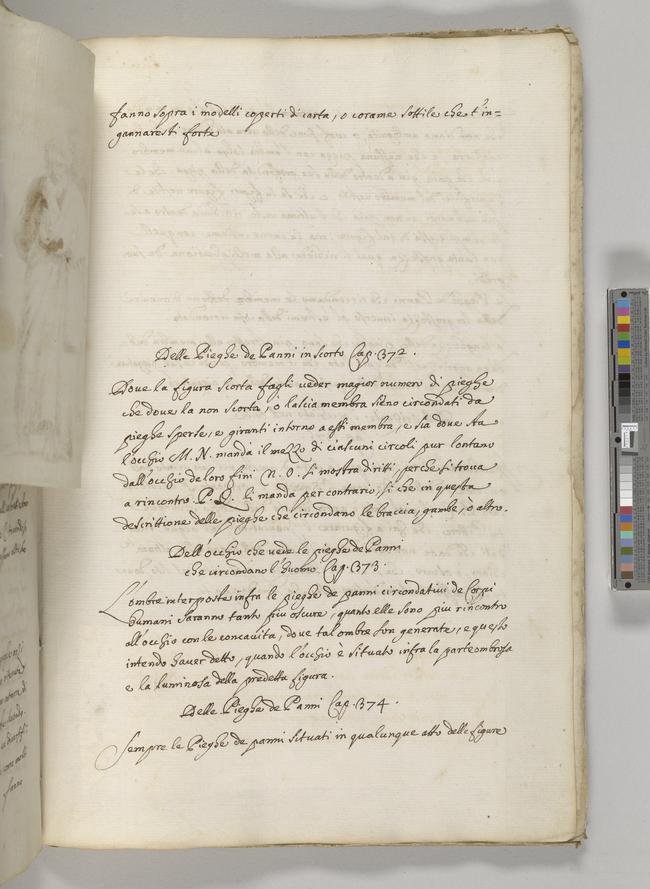 fanno sopra i modelli coperti di carta, o corame sottile che t'in=
gannaresti forte
Delle Pieghe de Panni in scorto Cap. 372.
Dove la figura scorta fagli veder magior numero di pieghe
che dove la non scorta, o lascia membra sieno circondati da
pieghe spesse, e giranti intorno a essi membra, e sia dove sta
l'occhio M. N. manda il mezzo di ciascuni circoli pur lontano
dall'occhio de loro fini N. O. li mostra diritti, perche si trova
a rincontro P. Q. li manda per contrario, si che in questa
descrittione delle pieghe che circondano le braccia, gambe, ò altro.
Dell'occhio che vede le pieghe de Panni
che circondano l'huomo Cap. 373.
L'ombre interposte infra le pieghe de panni circondativi de Corpi
humani saranno tanto piu oscure, quanto elle sono piu rincontro
all'occhio con le concavita, dove tal ombre son generate, e questo
intendo haver detto, quando l'occhio è situato infra la parte ombrosa
e la luminosa della predetta figura.
Delle Pieghe de Panni Cap. 374.
Sempre le Pieghe de panni situati in qualunque atto delle figure